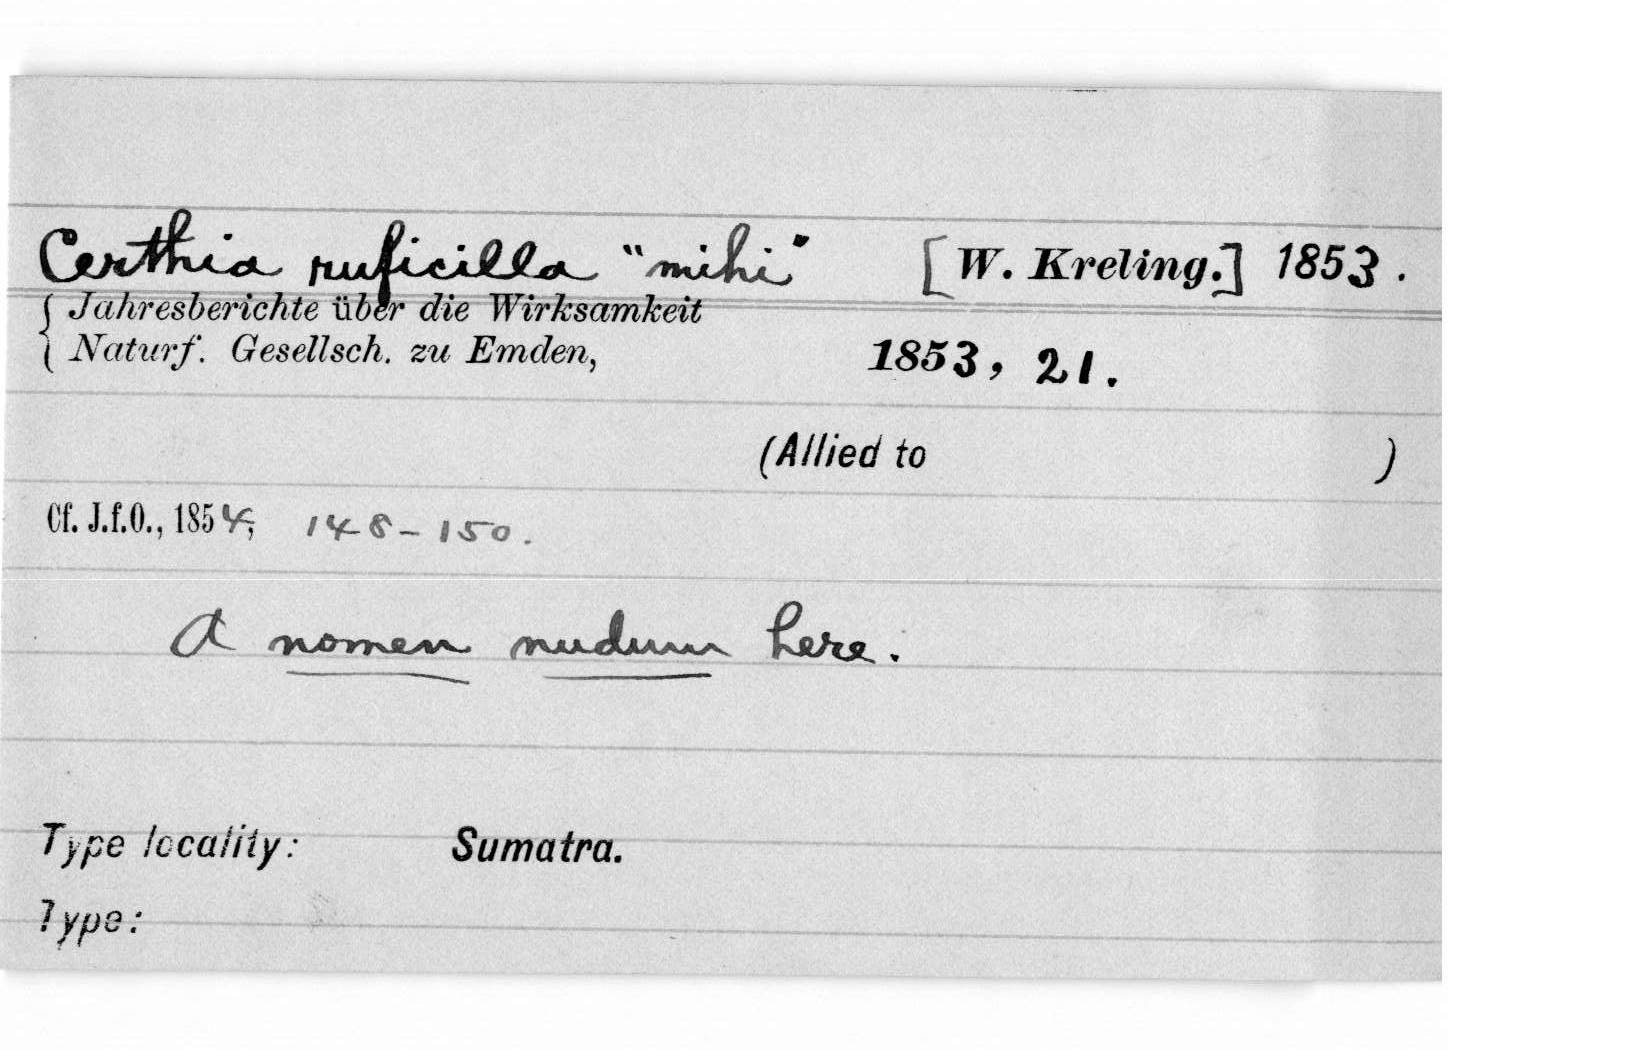 Certhia ruficilla "mihi" [W. Kreling.] 1853.
{ Jahresberichte über die Wirksamkeit
{ Naturf. Gesellsch. zu Emden, 1853, 21.
(Allied to )
Cf. J.f.O., 1854, 148-150.
A nomen nudum here.
Type locality: Sumatra.
Type: